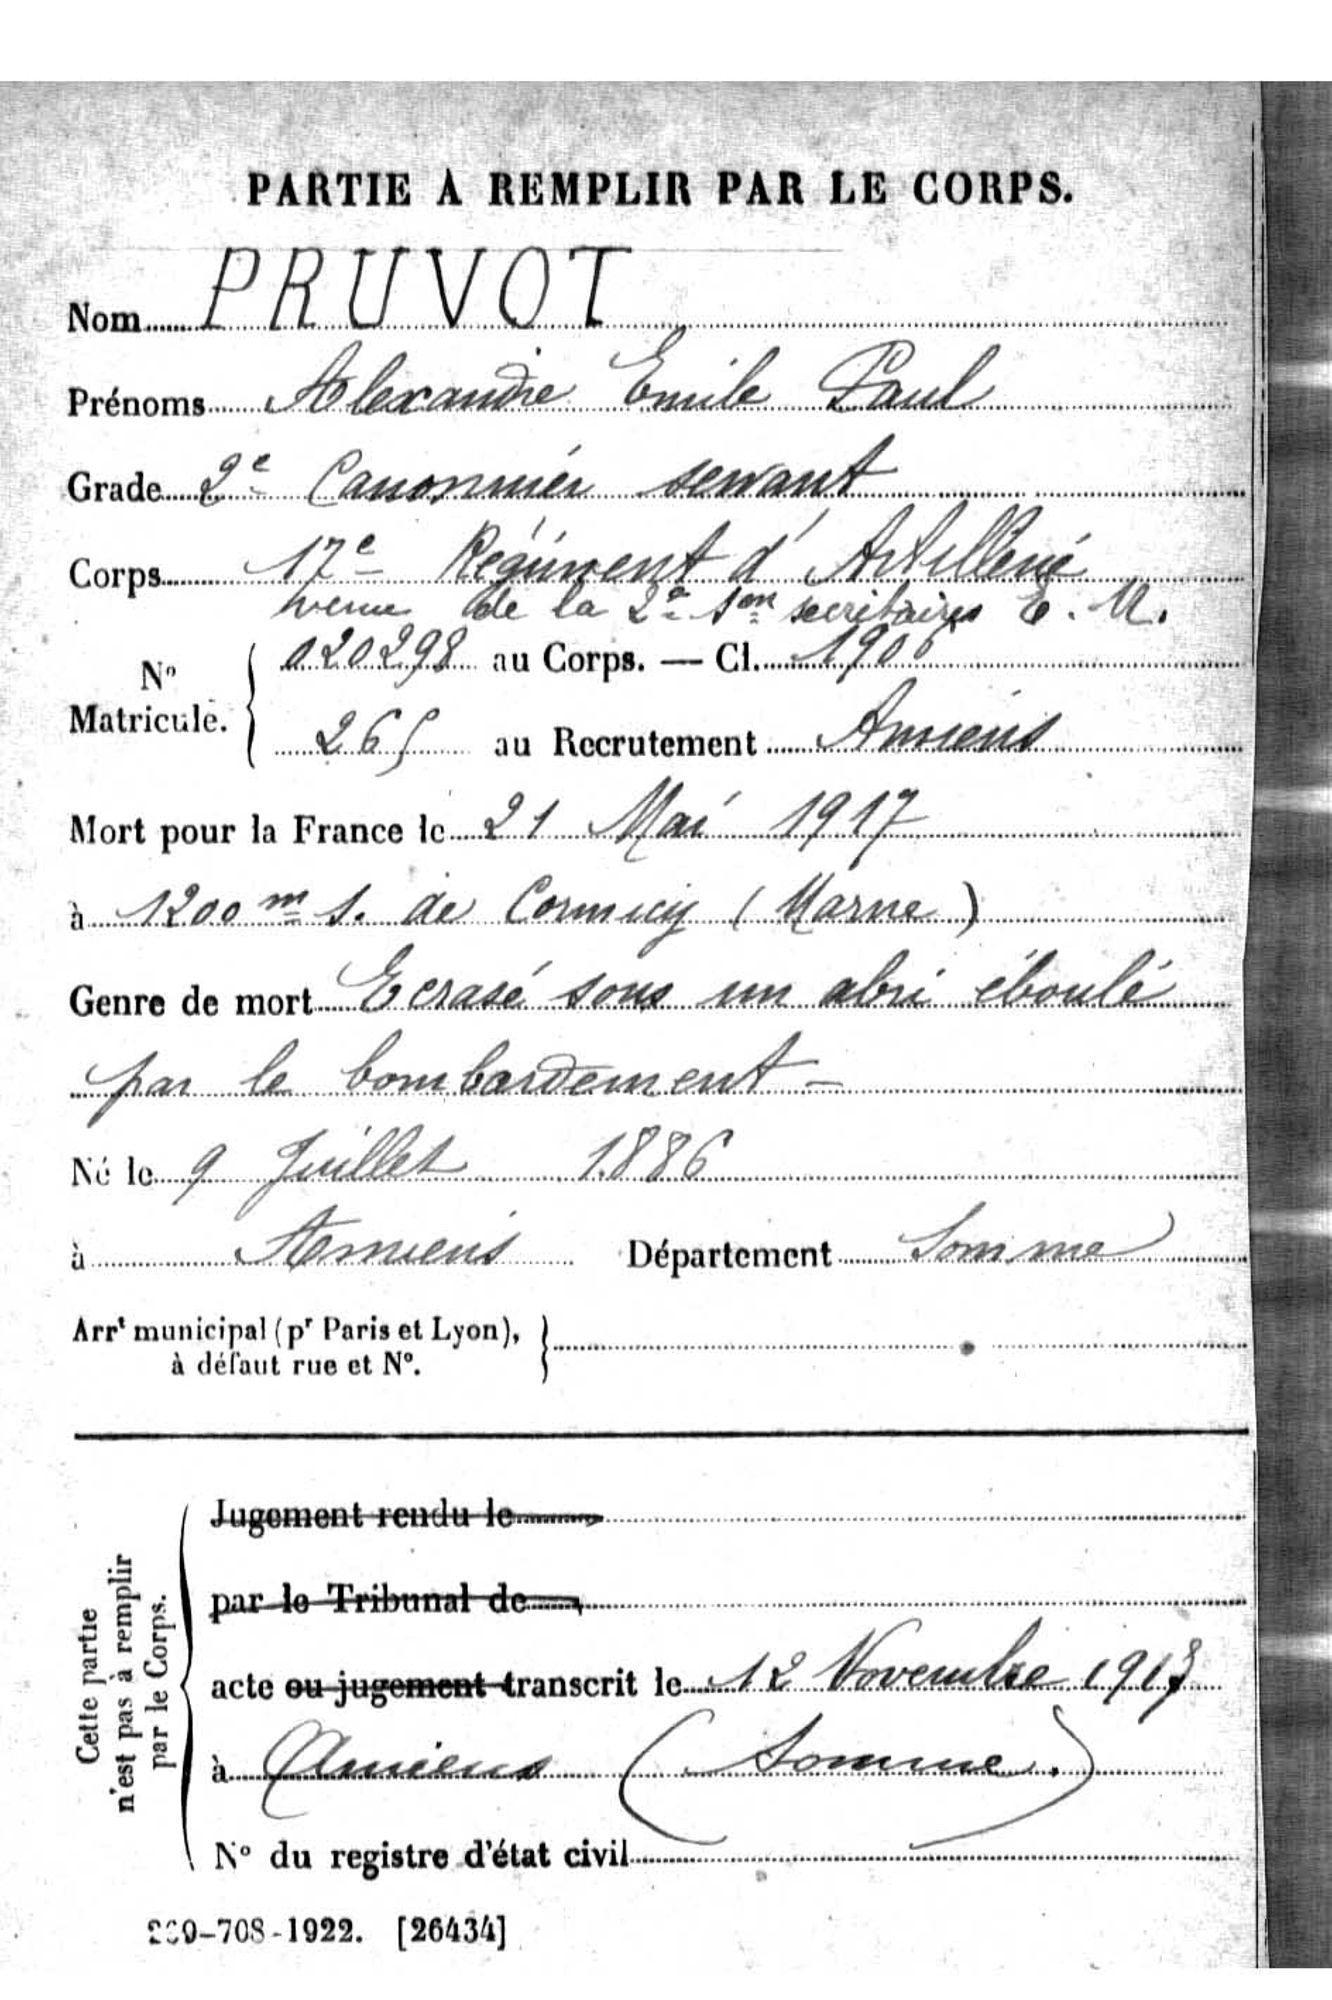 PARTIE A REMPLIR PAR LE CORPS.
Nom PRUVOT
Prénoms Alexandre Emile Paul
Grade 2e Canonnier servant
Corps 17e Régiment d'Artillerie
venu de la 2e son secrétaires E. M.
No Matricule. { 020298 au Corps. — Cl. 1906
265 au Recrutement Amiens
Mort pour la France le 21 Mai 1917
à 1200 m S. de Cormicy (Marne)
Genre de mort Ecrasé sous un abri éboulé
par le bombardement –
Né le 9 Juillet 1886
à Amiens Département Somme
Arrt municipal (pr Paris et Lyon), }
à défaut rue et No.
Cette partie n'est pas à remplir par le Corps.
Jugement rendu le
par le Tribunal de
acte ou jugement transcrit le 12 Novembre
à Amiens (Somme.)
No du registre d'état civil
-708-1922. [26434]